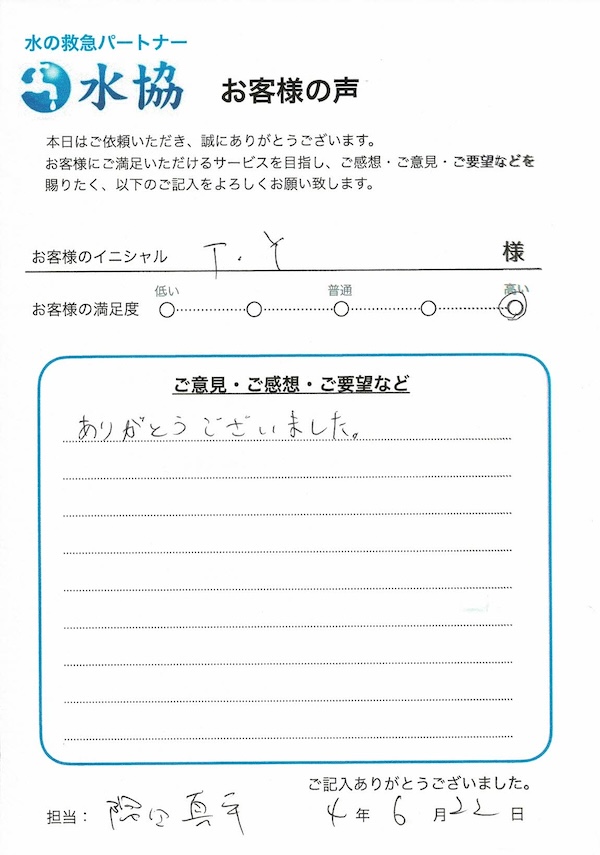 水の救急パートナー
水協 お客様の声
本日はご依頼いただき、誠にありがとうございます。
お客様にご満足いただけるサービスを目指し、ご感想・ご意見・ご要望などを
賜りたく、以下のご記入をよろしくお願い致します。
お客様のイニシャル T.Y 様
低い 普通 高い
お客様の満足度
ご意見・ご感想・ご要望など
ありがとうございました。
ご記入ありがとうございました。
担当： 真 4年6月22日